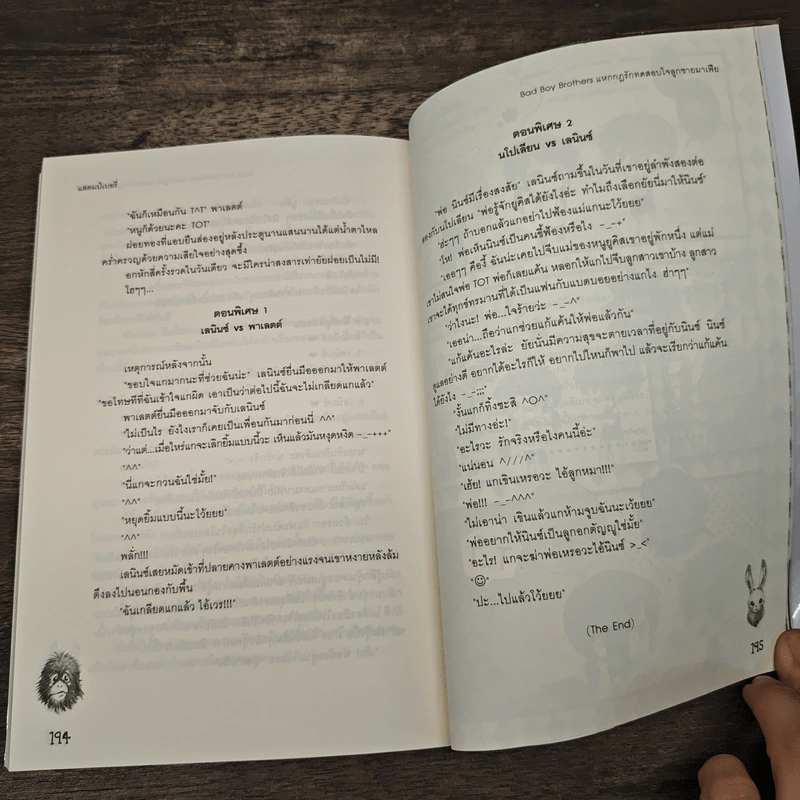 แสตมป์เบอรี่
"ฉันก็เหมือนกัน T^T" พาเลตต์
"หนูก็ด้วยนะคะ TOT"
ฝอยทองที่แอบยืนส่องอยู่หลังประตูนานแสนนานได้แต่น้ำตาไหล
คร่ำครวญด้วยความเสียใจอย่างสุดซึ้ง
อกหักสี่ครั้งรวดในวันเดียว จะมีใครน่าสงสารเท่ายัยฝอยเป็นไม่มี!
โฮๆๆ...
ตอนพิเศษ 1
เลนินซ์ vs พาเลตต์
เหตุการณ์หลังจากนั้น
"ขอบใจแกมากนะที่ช่วยฉันน่ะ" เลนินซ์ยื่นมือออกมาให้พาเลตต์
"ขอโทษทีที่ฉันเข้าใจแกผิด เอาเป็นว่าต่อไปนี้ฉันจะไม่เกลียดแกแล้ว"
พาเลตต์ยื่นมือออกมาจับกับเลนินซ์
"ไม่เป็นไร ยังไงเราก็เคยเป็นเพื่อนกันมาก่อนนี่ ^^"
"ว่าแต่...เมื่อไหร่แกจะเลิกยิ้มแบบนี้วะ เห็นแล้วมันหงุดหงิด -_-+++"
"^^"
"นี่แกจะกวนฉันใช่มั้ย!"
"^^"
"หยุดยิ้มแบบนี้นะโว้ยยย"
"^^"
พลั่ก!!!
เลนินซ์เสยหมัดเข้าที่ปลายคางพาเลตต์อย่างแรงจนเขาหงายหลังล้ม
ตึงลงไปนอนกองกับพื้น
"ฉันเกลียดแกแล้ว ไอ้เวร!!!"
194
Bad Boy Brothers แหกกฎรักทดสอบใจลูกชายมาเฟีย
ตอนพิเศษ 2
นโปเลียน vs เลนินซ์
"พ่อ นินซ์มีเรื่องสงสัย" เลนินซ์ถามขึ้นในวันที่เขาอยู่ลำพังสองต่อ
สองกับนโปเลียน "พ่อรู้จักยูคิสได้ยังไงอ่ะ ทำไมถึงเลือกยัยนี่มาให้นินซ์"
"ฮ่ะๆๆ ถ้าบอกแล้วแกอย่าไปฟ้องแม่แกนะโว้ยยย"
"โห! พ่อเห็นนินซ์เป็นคนขี้ฟ้องหรือไง -_-+"
"เฮอะๆๆ คืองี้ ฉันน่ะเคยไปจีบแม่ของหนูยูคิสเขาอยู่พักหนึ่ง แต่แม่
เขาไม่สนใจพ่อ TOT พ่อก็เลยแค้น หลอกให้แกไปจีบลูกสาวเขาบ้าง ลูกสาว
เขาจะได้ทุกข์ทรมานที่ได้เป็นแฟนกับแบดบอยอย่างแกไง ฮ่าๆๆ"
"ว่าไงนะ! พ่อ...ใจร้ายว่ะ -_-^"
"เออน่า...ถือว่าแกช่วยแก้แค้นให้พ่อแล้วกัน"
"แก้แค้นอะไรล่ะ ยัยนั่นมีความสุขจะตายเวลาที่อยู่กับนินซ์ นินซ์
ดูแลอย่างดี อยากได้อะไรก็ให้ อยากไปไหนก็พาไป แล้วจะเรียกว่าแก้แค้น
ได้ยังไง -_-;;;"
"งั้นแกก็ทิ้งซะสิ ^O^"
"ไม่มีทางอ่ะ!"
"อะไรวะ รักจริงหรือไงคนนี้อ่ะ"
"แน่นอน ^///^"
"เฮ้ย! แกเขินเหรอวะ ไอ้ลูกหมา!!!"
"พ่อ!!! -_-^^^"
"ไม่เอาน่า เขินแล้วแกห้ามจูบฉันนะเว้ยยย"
"พ่ออยากให้นินซ์เป็นลูกอกตัญญูใช่มั้ย"
"อะไร! แกจะฆ่าพ่อเหรอวะไอ้นินซ์ >_<"
"☺"
"ปะ...ไปแล้วโว้ยยย"
(The End)
195